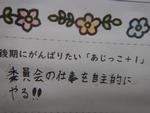 後期にがんばりたい「あじっこ+1」
委員会の仕事を自主的に
やる!!